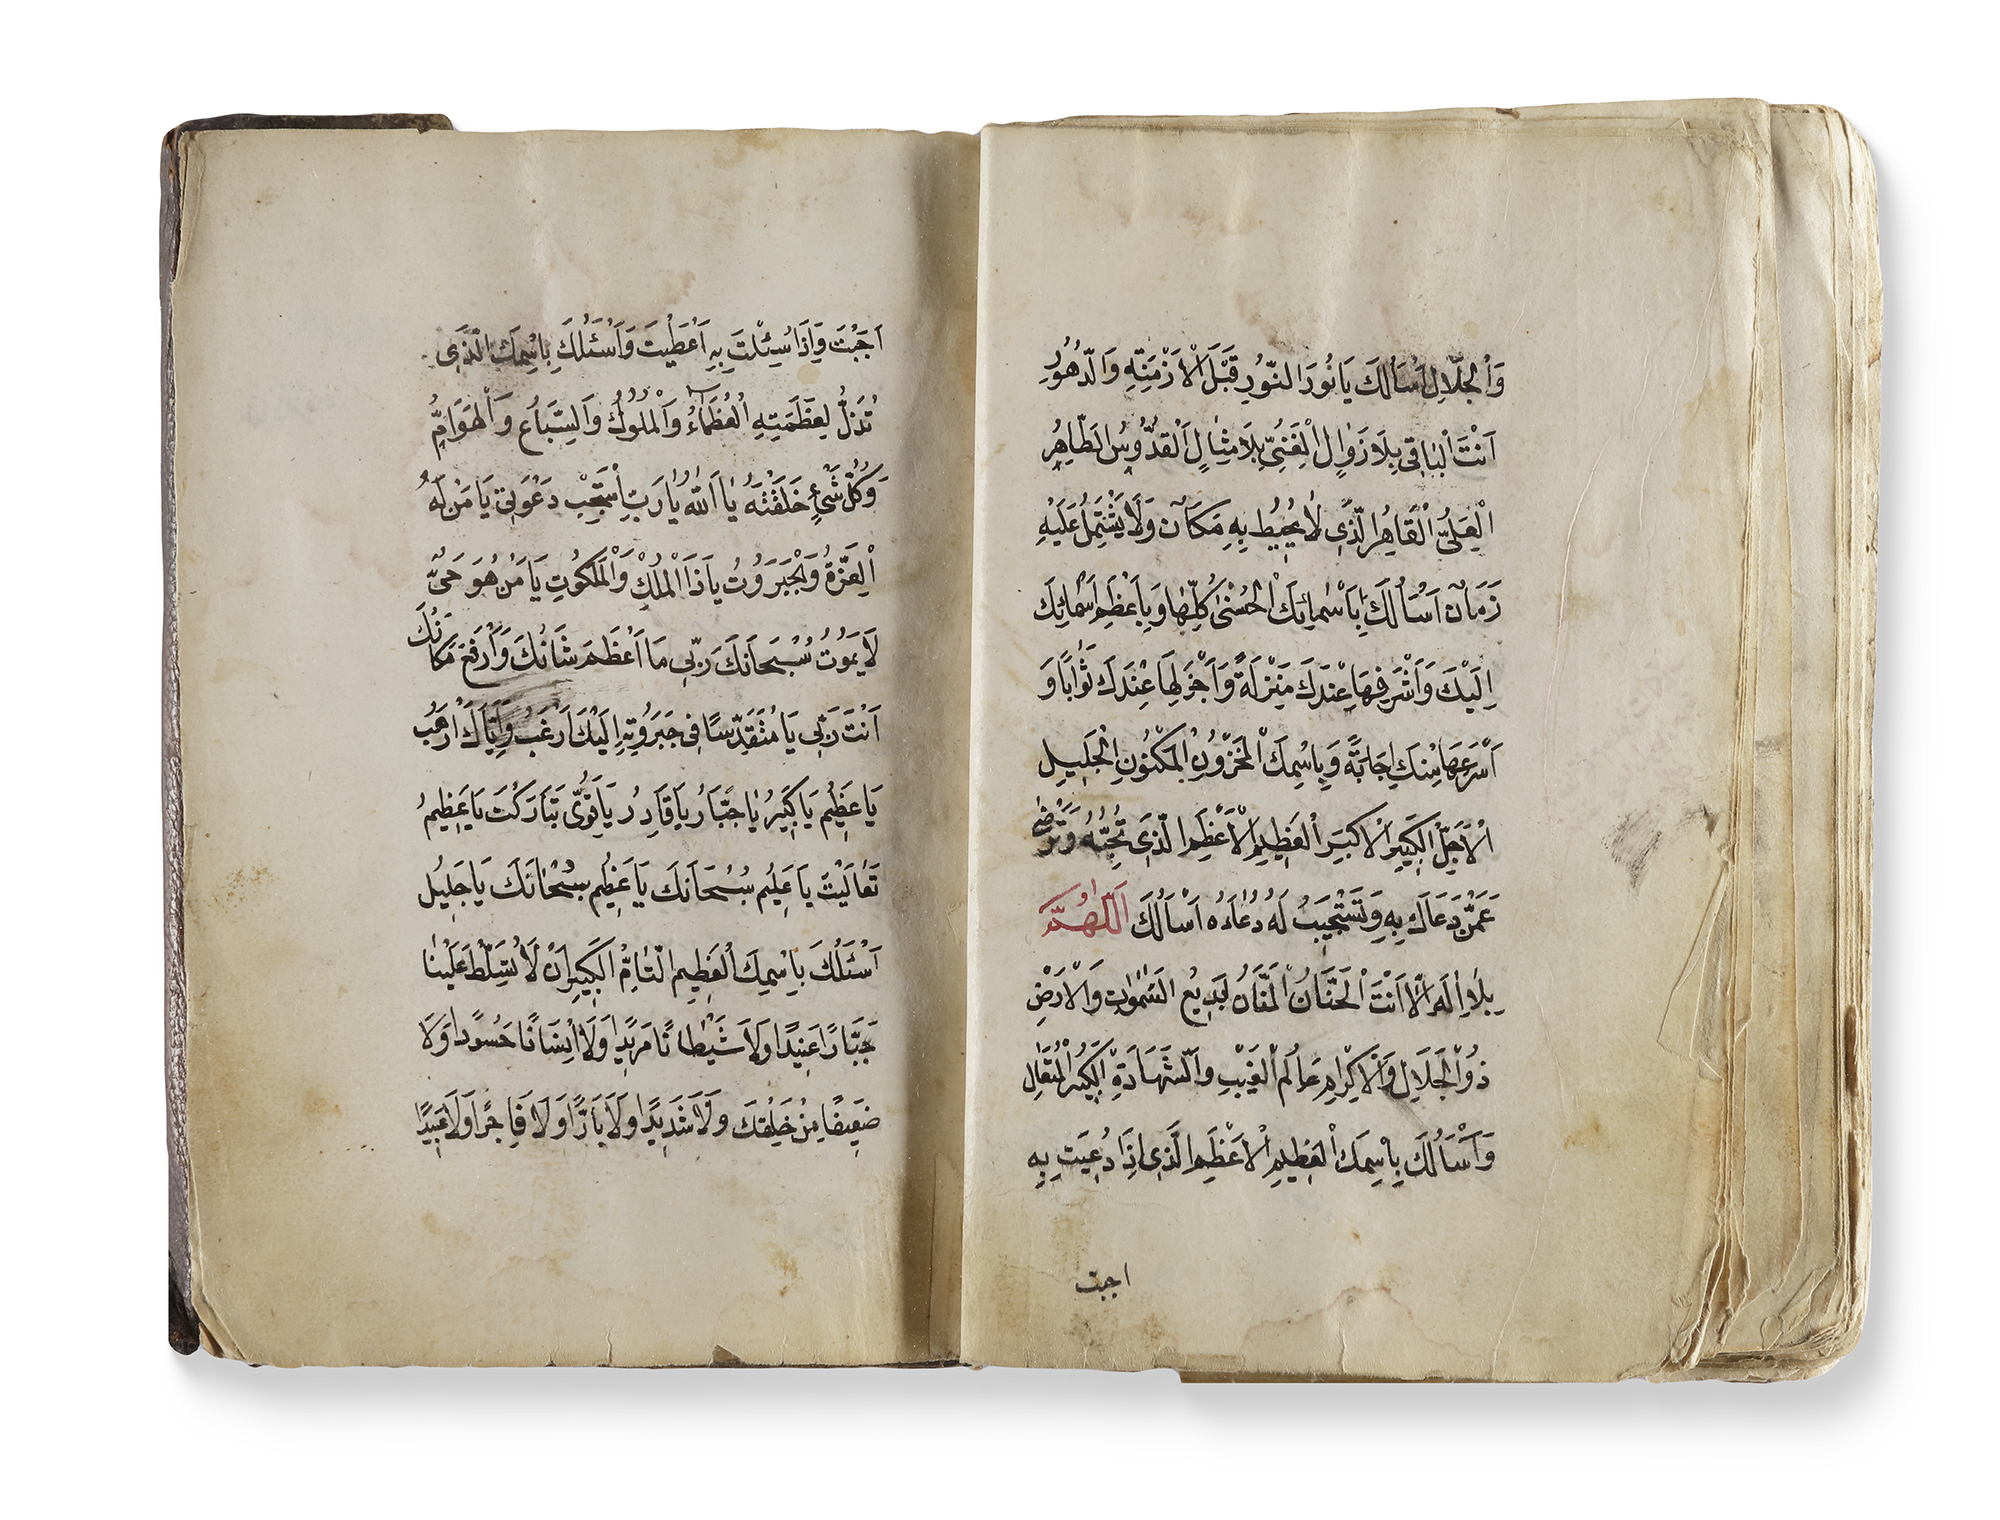 وَالْجَلَالِ اَسْاَلُكَ يَا نُورَ النُّورِ قَبْلَ الْاَزْمِنَةِ وَالدُّهُورِ
اَنْتَ الْبَاقِى بِلَا زَوَالٍ الْغَنِىُّ بِلَا مِثَالٍ اَلْقُدُّوسُ الطَّاهِرُ
الْعَلِىُّ الْقَاهِرُ الَّذِى لَا يُحِيطُ بِهِ مَكَانٌ وَلَا يَشْتَمِلُ عَلَيْهِ
زَمَانٌ اَسْاَلُكَ بِاَسْمَائِكَ الْحُسْنٰى كُلِّهَا وَبِاَعْظَمِ اَسْمَائِكَ
اِلَيْكَ وَاَشْرَفِهَا عِنْدَكَ مَنْزِلَةً وَاَجْزَلِهَا عِنْدَكَ ثَوَابًا وَ
اَسْرَعِهَا مِنْكَ اِجَابَةً وَبِاسْمِكَ الْمَخْزُونِ الْمَكْنُونِ الْجَلِيلِ
الْاَجَلِّ الْكَبِيرِ الْاَكْبَرِ الْعَظِيمِ الْاَعْظَمِ الَّذِى تُحِبُّهُ وَتَرْضٰى
عَمَّنْ دَعَاكَ بِهِ وَتَسْتَجِيبُ لَهُ دُعَاءَهُ اَسْاَلُكَ اَللّٰهُمَّ
بِلَا اِلٰهَ اِلَّا اَنْتَ الْحَنَّانُ الْمَنَّانُ بَدِيعُ السَّمٰوَاتِ وَالْاَرْضِ
ذُو الْجَلَالِ وَالْاِكْرَامِ عَالِمُ الْغَيْبِ وَالشَّهَادَةِ الْكَبِيرُ الْمُتَعَالِ
وَاَسْاَلُكَ بِاسْمِكَ الْعَظِيمِ الْاَعْظَمِ الَّذِى اِذَا دُعِيتَ بِهِ
اجبت
اَجَبْتَ وَاِذَا سُئِلْتَ بِهِ اَعْطَيْتَ وَاَسْئَلُكَ بِاسْمِكَ الَّذِى
تُذَلُّ لِعَظَمَتِهِ الْعُظَمَاءُ وَالْمُلُوكُ وَالسِّبَاعُ وَالْهَوَامُّ
وَكُلُّ شَىْءٍ خَلَقْتَهُ يَا اَللّٰهُ يَا رَبِّ اسْتَجِبْ دَعْوَتِى يَا مَنْ لَهُ
الْعِزَّةُ وَالْجَبَرُوتُ يَا ذَا الْمُلْكِ وَالْمَلَكُوتِ يَا مَنْ هُوَ حَىٌّ
لَا يَمُوتُ سُبْحَانَكَ رَبِّى مَا اَعْظَمَ شَانَكَ وَاَرْفَعَ مَكَانَكَ
اَنْتَ رَبِّى يَا مُتَقَدِّسًا فِى جَبَرُوتِهِ اِلَيْكَ اَرْغَبُ وَاِيَّاكَ اَرْهَبُ
يَا عَظِيمُ يَا كَبِيرُ يَا جَبَّارُ يَا قَادِرُ يَا قَوِىُّ تَبَارَكْتَ يَا عَظِيمُ
تَعَالَيْتَ يَا عَلِيمُ سُبْحَانَكَ يَا عَظِيمُ سُبْحَانَكَ يَا جَلِيلُ
اَسْئَلُكَ بِاسْمِكَ الْعَظِيمِ التَّامِّ الْكَبِيرِ اَنْ لَا تُسَلِّطَ عَلَيْنَا
جَبَّارًا عَنِيدًا وَلَا شَيْطَانًا مَرِيدًا وَلَا اِنْسَانًا حَسُودًا وَلَا
ضَعِيفًا مِنْ خَلْقِكَ وَلَا شَدِيدًا وَلَا بَارًّا وَلَا فَاجِرًا وَلَا عَبِيدًا